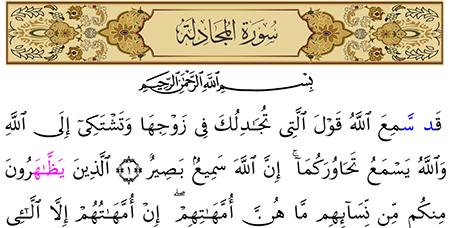 سُورَةُ المُجَادلَة
بِسْمِ اللَّهِ الرَّحْمَٰنِ الرَّحِيمِ
قَد سَّمِعَ ٱللَّهُ قَوْلَ ٱلَّتِى تُجَٰدِلُكَ فِى زَوْجِهَا وَتَشْتَكِىٓ إِلَى ٱللَّهِ
وَٱللَّهُ يَسْمَعُ تَحَاوُرَكُمَآ ۚ إِنَّ ٱللَّهَ سَمِيعٌۢ بَصِيرٌ ﴿١﴾ ٱلَّذِينَ يَظَّٰهَرُونَ
مِنكُم مِّن نِّسَآئِهِم مَّا هُنَّ أُمَّهَٰتِهِمْ ۖ إِنْ أُمَّهَٰتُهُمْ إِلَّا ٱلَّٰٓـِٔى